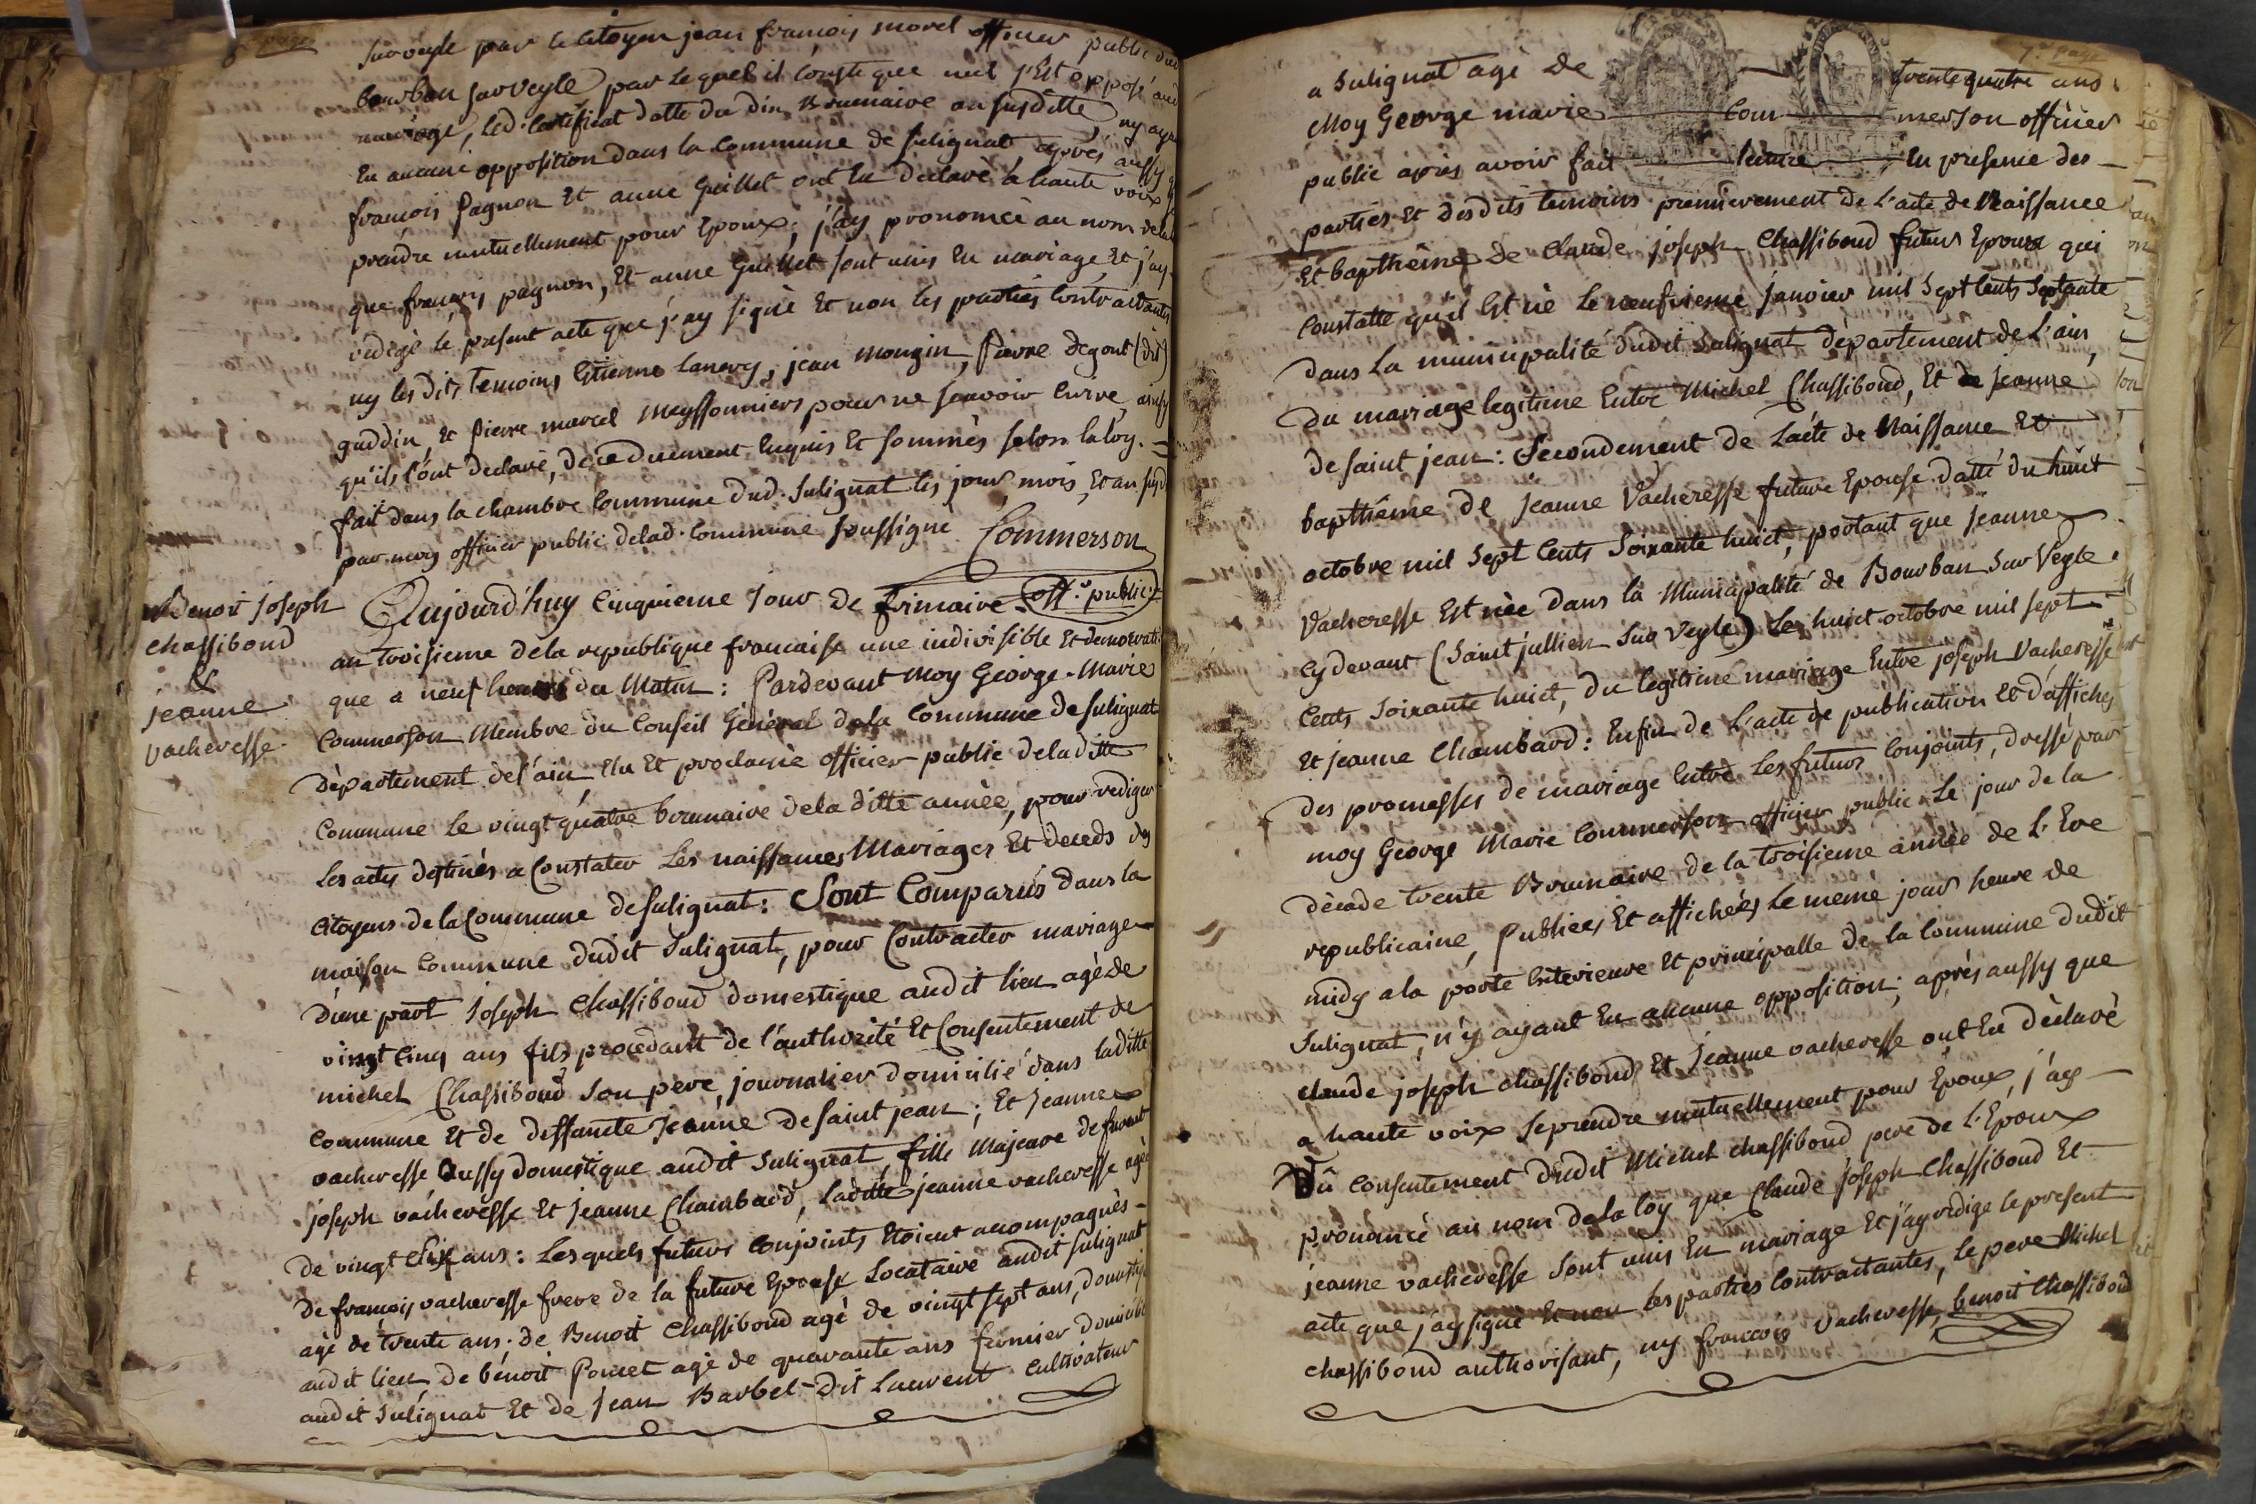 Sur veyle par le citoyen jean francois morel officier public dud
bourbon sur veyle par lequel il conste que nul s'est opposé aud
mariage, led. certificat datté du dix Brumaire an susditte, ny ayant
Eu aucune opposition dans la commune de sulignat après aussy que
francois pagnon Et anne Guillet ont Eu declaré à haute voix
prendre mutuellement pour Epoux, j'ay prononcé au nom de la
que francois pagnon, Et anne Guillet sont unis En mariage Et j'ay
redigé le present acte que j'ay signé Et non les parties contractantes
ny les dits temoins Etienne lanery, jean mongin, pierre degout (dit)
guddin, Et pierre marcel meyssonniers pour ne scavoir Ecrire, ainsy
qu'ils l'ont declaré, de ce duement Enquis Et sommés selon la loy.
fait dans la chambre commune dud. Sulignat les jour, mois, Et an susd
par moy officier public de lad. commune soussigné Commerson
off.r public
Benoit Joseph
chassiboud
&
jeanne
vacheresse
Aujourd'huy cinquieme jour de frimaire
an troisieme de la republique francaise une indivisible Et democrati
que a neuf heures du Matin : Pardevant Moy George-Marie
Commerson Membre du Conseil Général de la Commune de Sulignat
Département de l'ain, Elu Et proclamé officier public de la ditte
Commune le vingt quatre brumaire de la ditte année, pour rediger
Les actes destinés a Constater Les naissances Mariages Et deceds des
citoyens de la Commune de Sulignat : Sont Comparus dans la
maison Commune dudit Sulignat, pour Contracter mariage
D'une part Joseph Chassiboud domestique audit lieu agé de
vingt cinq ans fils procedant de l'authorité Et Consentement de
michel Chassiboud son pere, journalier domicilié dans laditte
Commune Et de deffuncte Jeanne de saint jean ; Et Jeanne
vacheresse Aussy domestique audit Sulignat fille Majeure de
joseph vacheresse Et Jeanne Chambard, laditte jeanne vacheresse agée
De vingt Six ans : Lesquels futurs Conjoints Etoient accompagnés
De francois vacheresse frere de la future Epouse Locataire audit Sulignat
agé de trente ans, de Benoit Chassiboud agé de vingt sept ans, domestique
audit lieu de bénoit Poncet agé de quarante ans fermier domicilié
audit Sulignat Et de Jean Barbet Dit Laurent Cultivateur
7.e page
a Sulignat agé de trente quatre ans
Moy George marie Commerson officier
public après avoir fait lecture En presence des
parties Et desdits temoins premierement de L'acte de Naissance
Et bapthême de Claude joseph Chassiboud futur Epoux qui
Constatte qu'il Est né Le neufvieme janvier mil Sept Cents Septante
Dans La municipalité dudit Sulignat département de L'ain,
Du mariage legitime Entre Michel Chassiboud, Et Jeanne
de saint jean : Secondement de L'acte de Naissance Et
bapthême de Jeanne Vacheresse future Epouse datté du huict
octobre mil Sept Cents Soixante huict, portant que Jeanne
Vacheresse Est née dans la Municipalité de Bourban Sur Veyle
Cy devant (Saint jullien Sur Veyle) Le huict octobre mil Sept
Cents Soixante huict, du legitime mariage Entre joseph Vacheresse
Et jeanne Chambard : Enfin de L'acte de publication Et d'affiches
des promesses de mariage Entre Les futurs Conjoints, dressé par
moy George Marie Commerson officier public, Le jour de la
Décade trente Brumaire de la troisieme année de L'Ere
republicaine, Publiées Et affichées Le meme jour heure de
midy a la porte Exterieure Et principalle de la Commune dudit
Sulignat, n'y ayant Eu aucune opposition, après aussy que
claude joseph chassiboud Et Jeanne vacheresse ont Eu déclaré
a haute voix Se prendre mutuellement pour Epoux, j'ay
Vû consentement dudit Michel chassiboud pere de L'Epoux
prononcé au nom de la loy que Claude joseph Chassiboud Et
jeanne vacheresse Sont unis En mariage Et j'ay redigé le present
acte que j'ay signé Et non les parties Contractantes, Le pere Michel
chassiboud authorisant, ny francois vacheresse, benoit Chassiboud